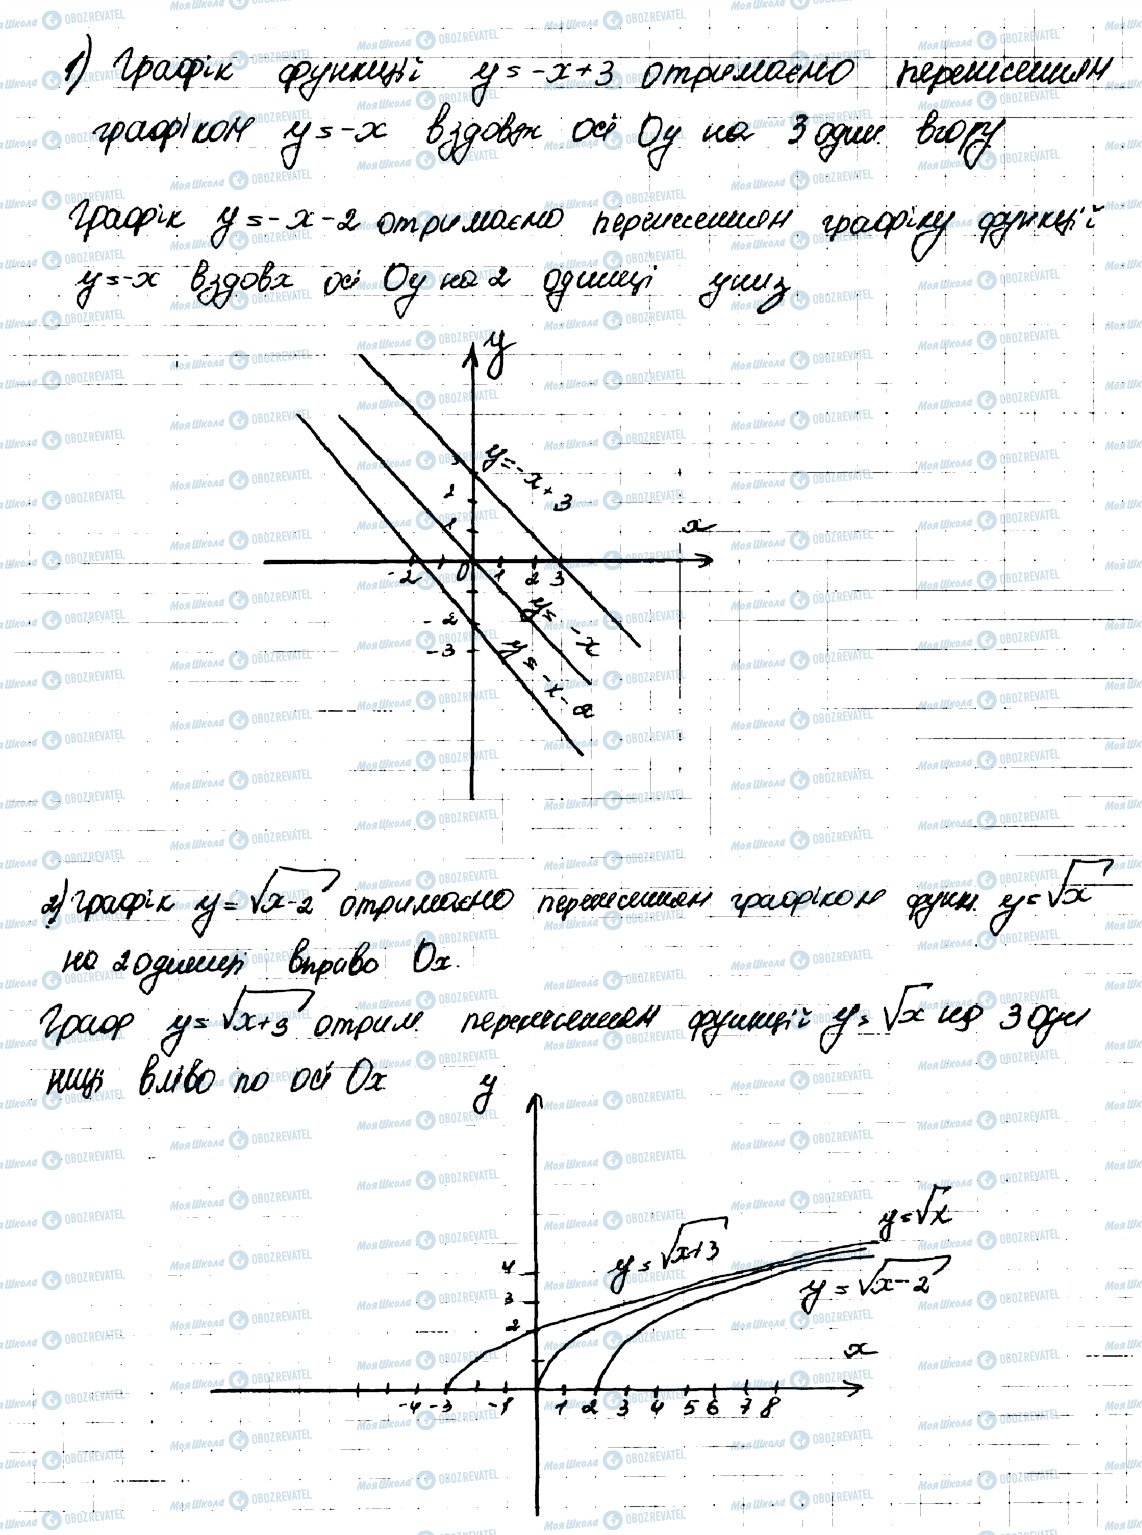 1) Графік функції y = -x+3 отримаємо перенесенням
графіком y = -x вздовж осі Oy на 3 один. вгору
Графік y = -x-2 отримаємо перенесенням графіку функції
y = -x вздовж осі Oy на 2 одиниці униз
y
3
y = -x+3
2
1
x
-2
0
1
2
3
y = -x
-2
-3
y = -x-2
2) Графік y = √x-2 отримаємо перенесенням графіком функ. y = √x
на 2 одиниці вправо Ox.
Граф y = √x+3 отрим. перенесенням функції y = √x на 3 оди
ниці вліво по осі Ox
y
y = √x
y = √x+3
4
y = √x-2
3
2
x
-4 -3 -1 1 2 3 4 5 6 7 8
Моя Школа OBOZREVATEL